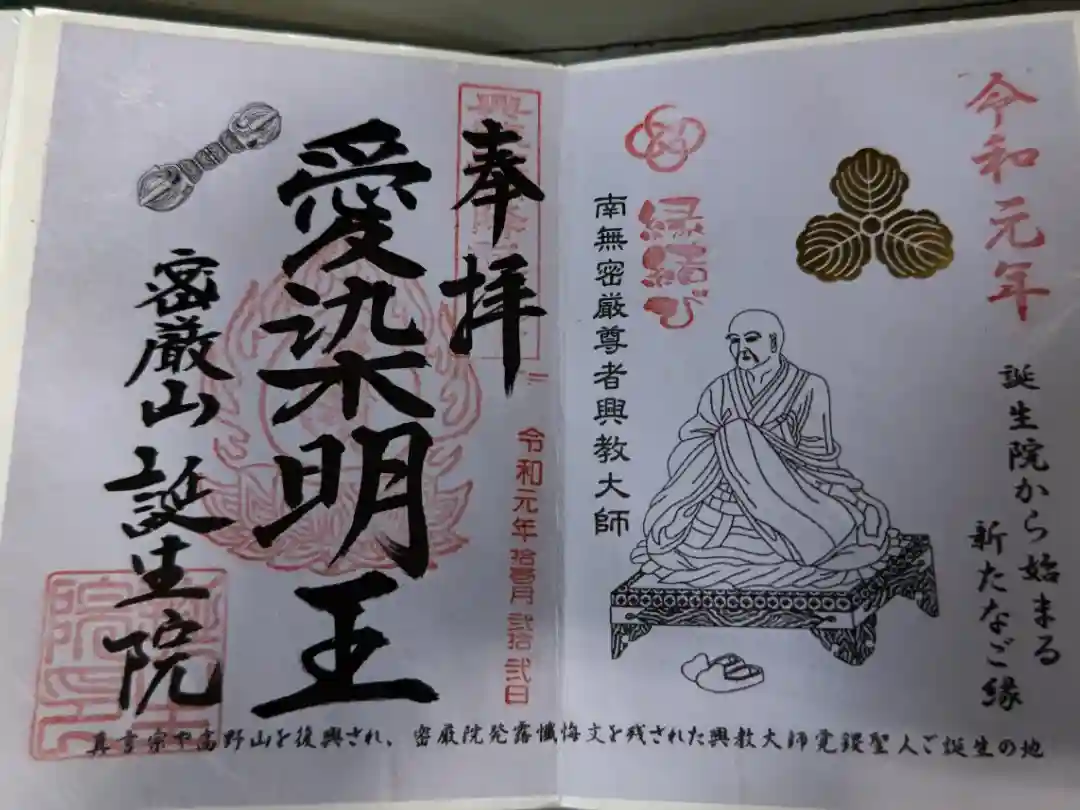 令和元年
誕生院から始まる
新たなご縁
縁結び
南無密厳尊者興教大師
奉拝
令和元年拾壱月弐拾弐日
愛染明王
密厳山誕生院
真言宗や高野山を復興され、密厳院発露懺悔文を残された興教大師覚鑁聖人ご誕生の地